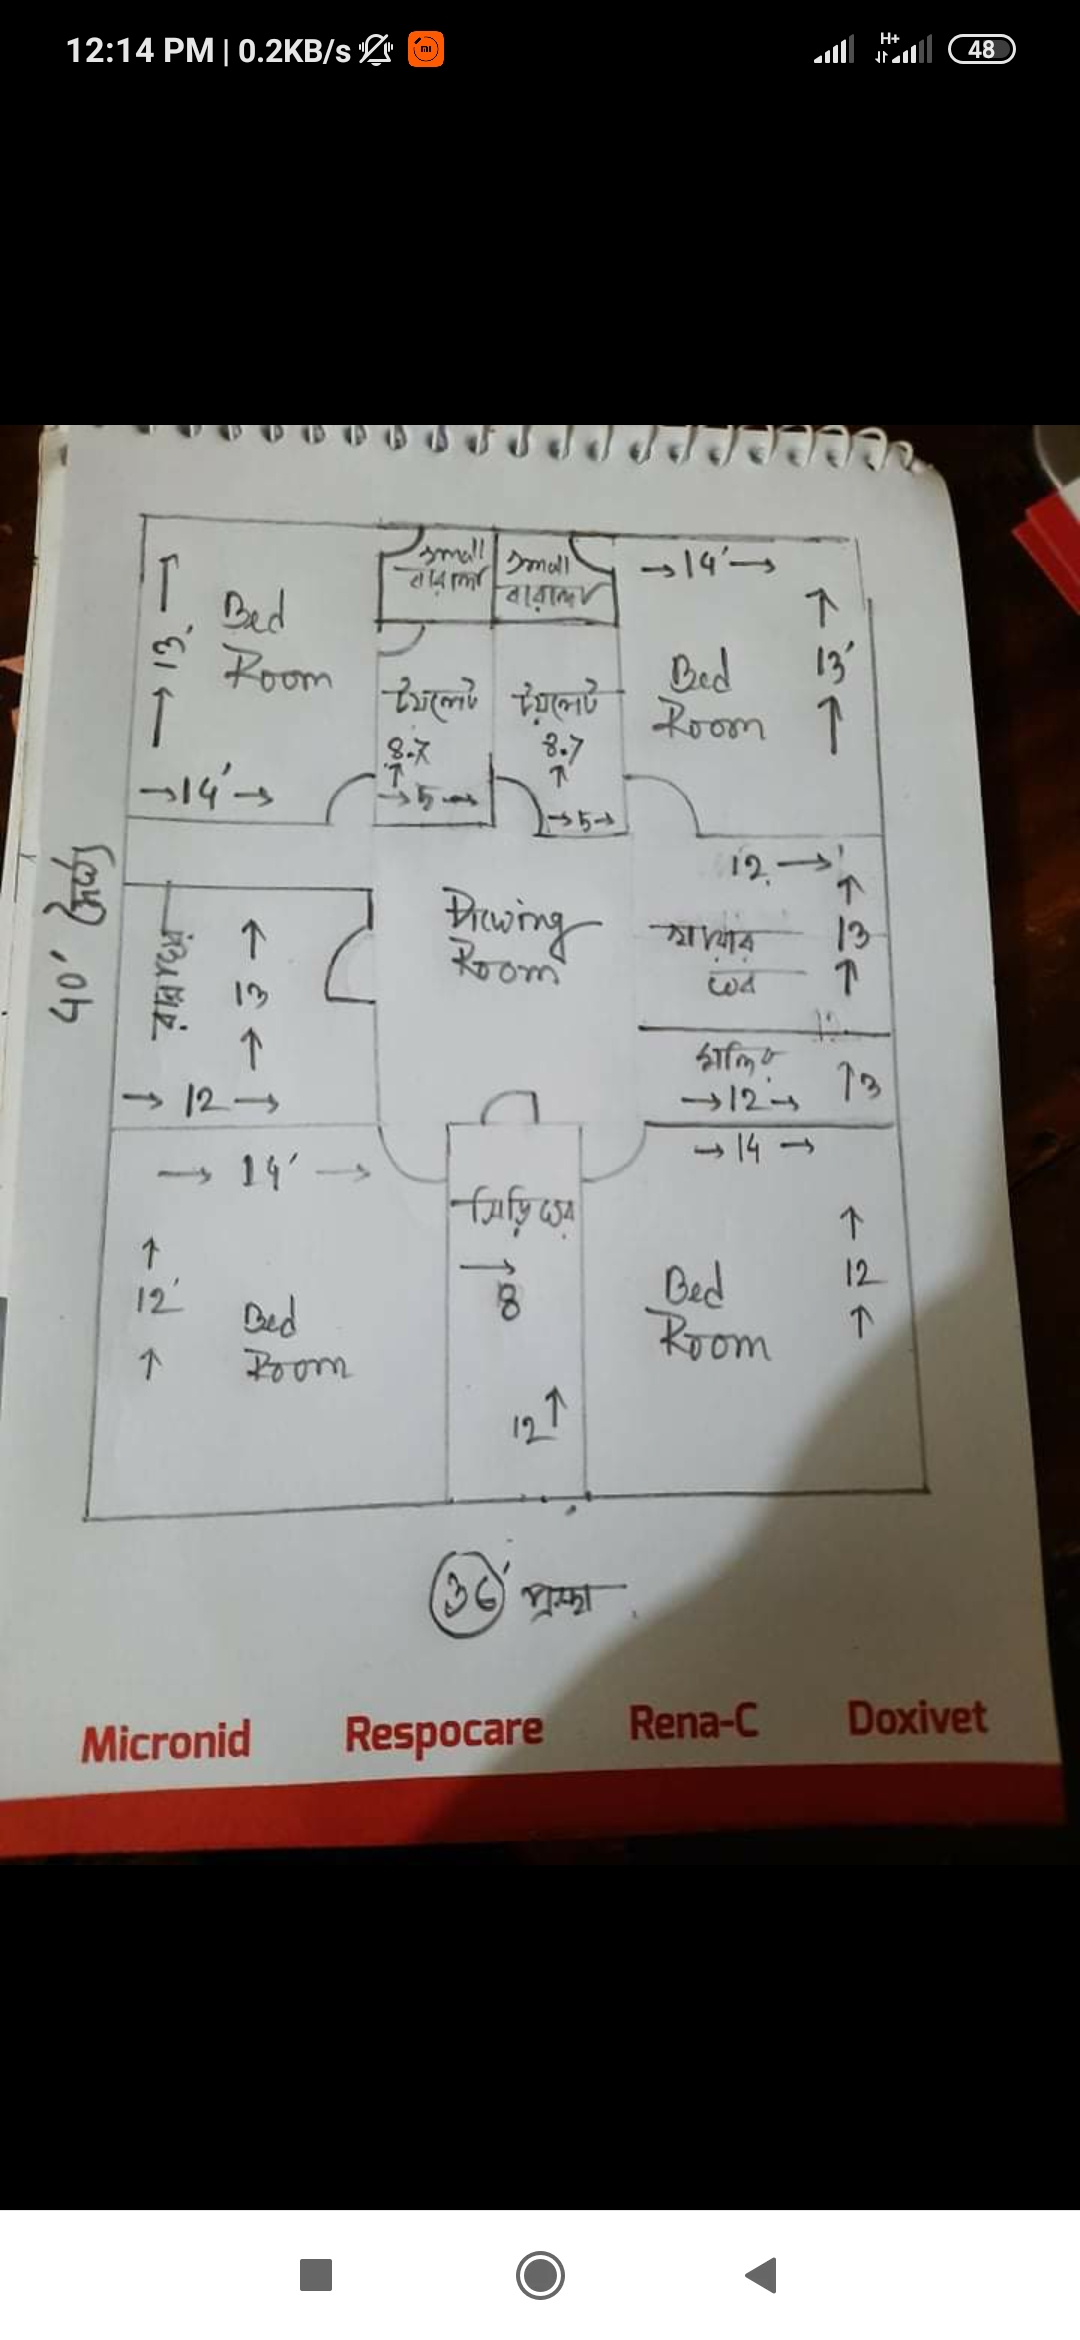 12:14 PM | 0.2KB/s
H+
48
small
বারান্দা
small
বারান্দা
→14'→
Bed
Room
13'
14'
Bed
Room
13'
টয়লেট
8.7
→5→
টয়লেট
8.7
→5→
40' দৈর্ঘ্য
রান্নাঘর
13
→ 12 →
Drawing
Room
12 →
খাবার
ঘর
13
গলি
→12→
3
→ 14' →
12'
Bed
Room
সিঁড়ি ঘর
→
8
12
→ 14 →
Bed
Room
12
36' প্রস্থ
Micronid Respocare Rena-C Doxivet